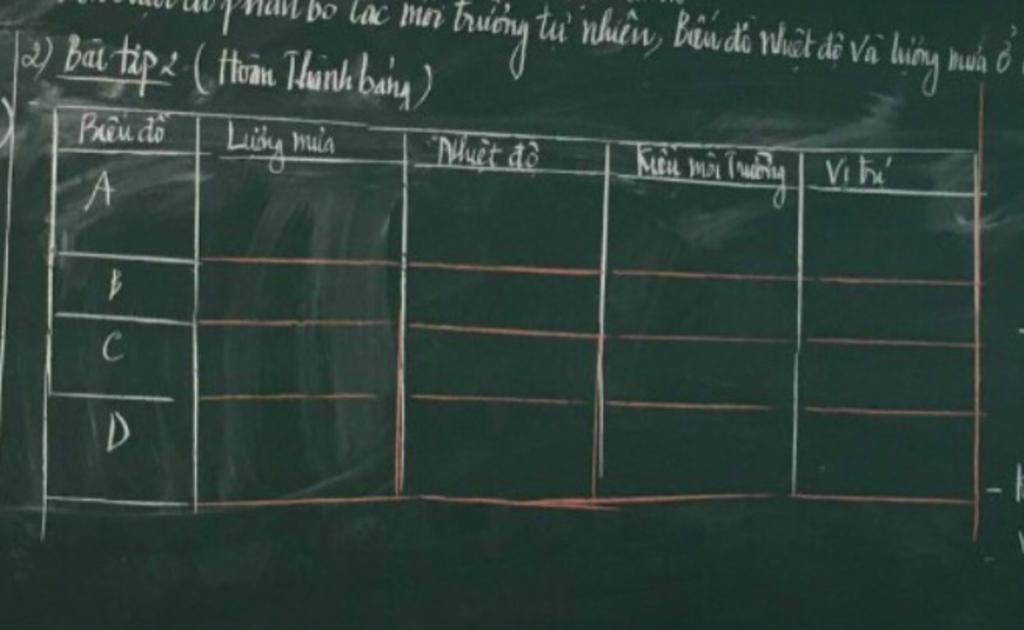 phân bố các môi trường tự nhiên, Biểu đồ nhiệt độ và lượng mưa ở
2) Bài tập 2 (Hoàn Thành bảng)
Biểu đồ Lượng mưa Nhiệt độ Kiểu môi Trường Vị trí
A
B
C
D